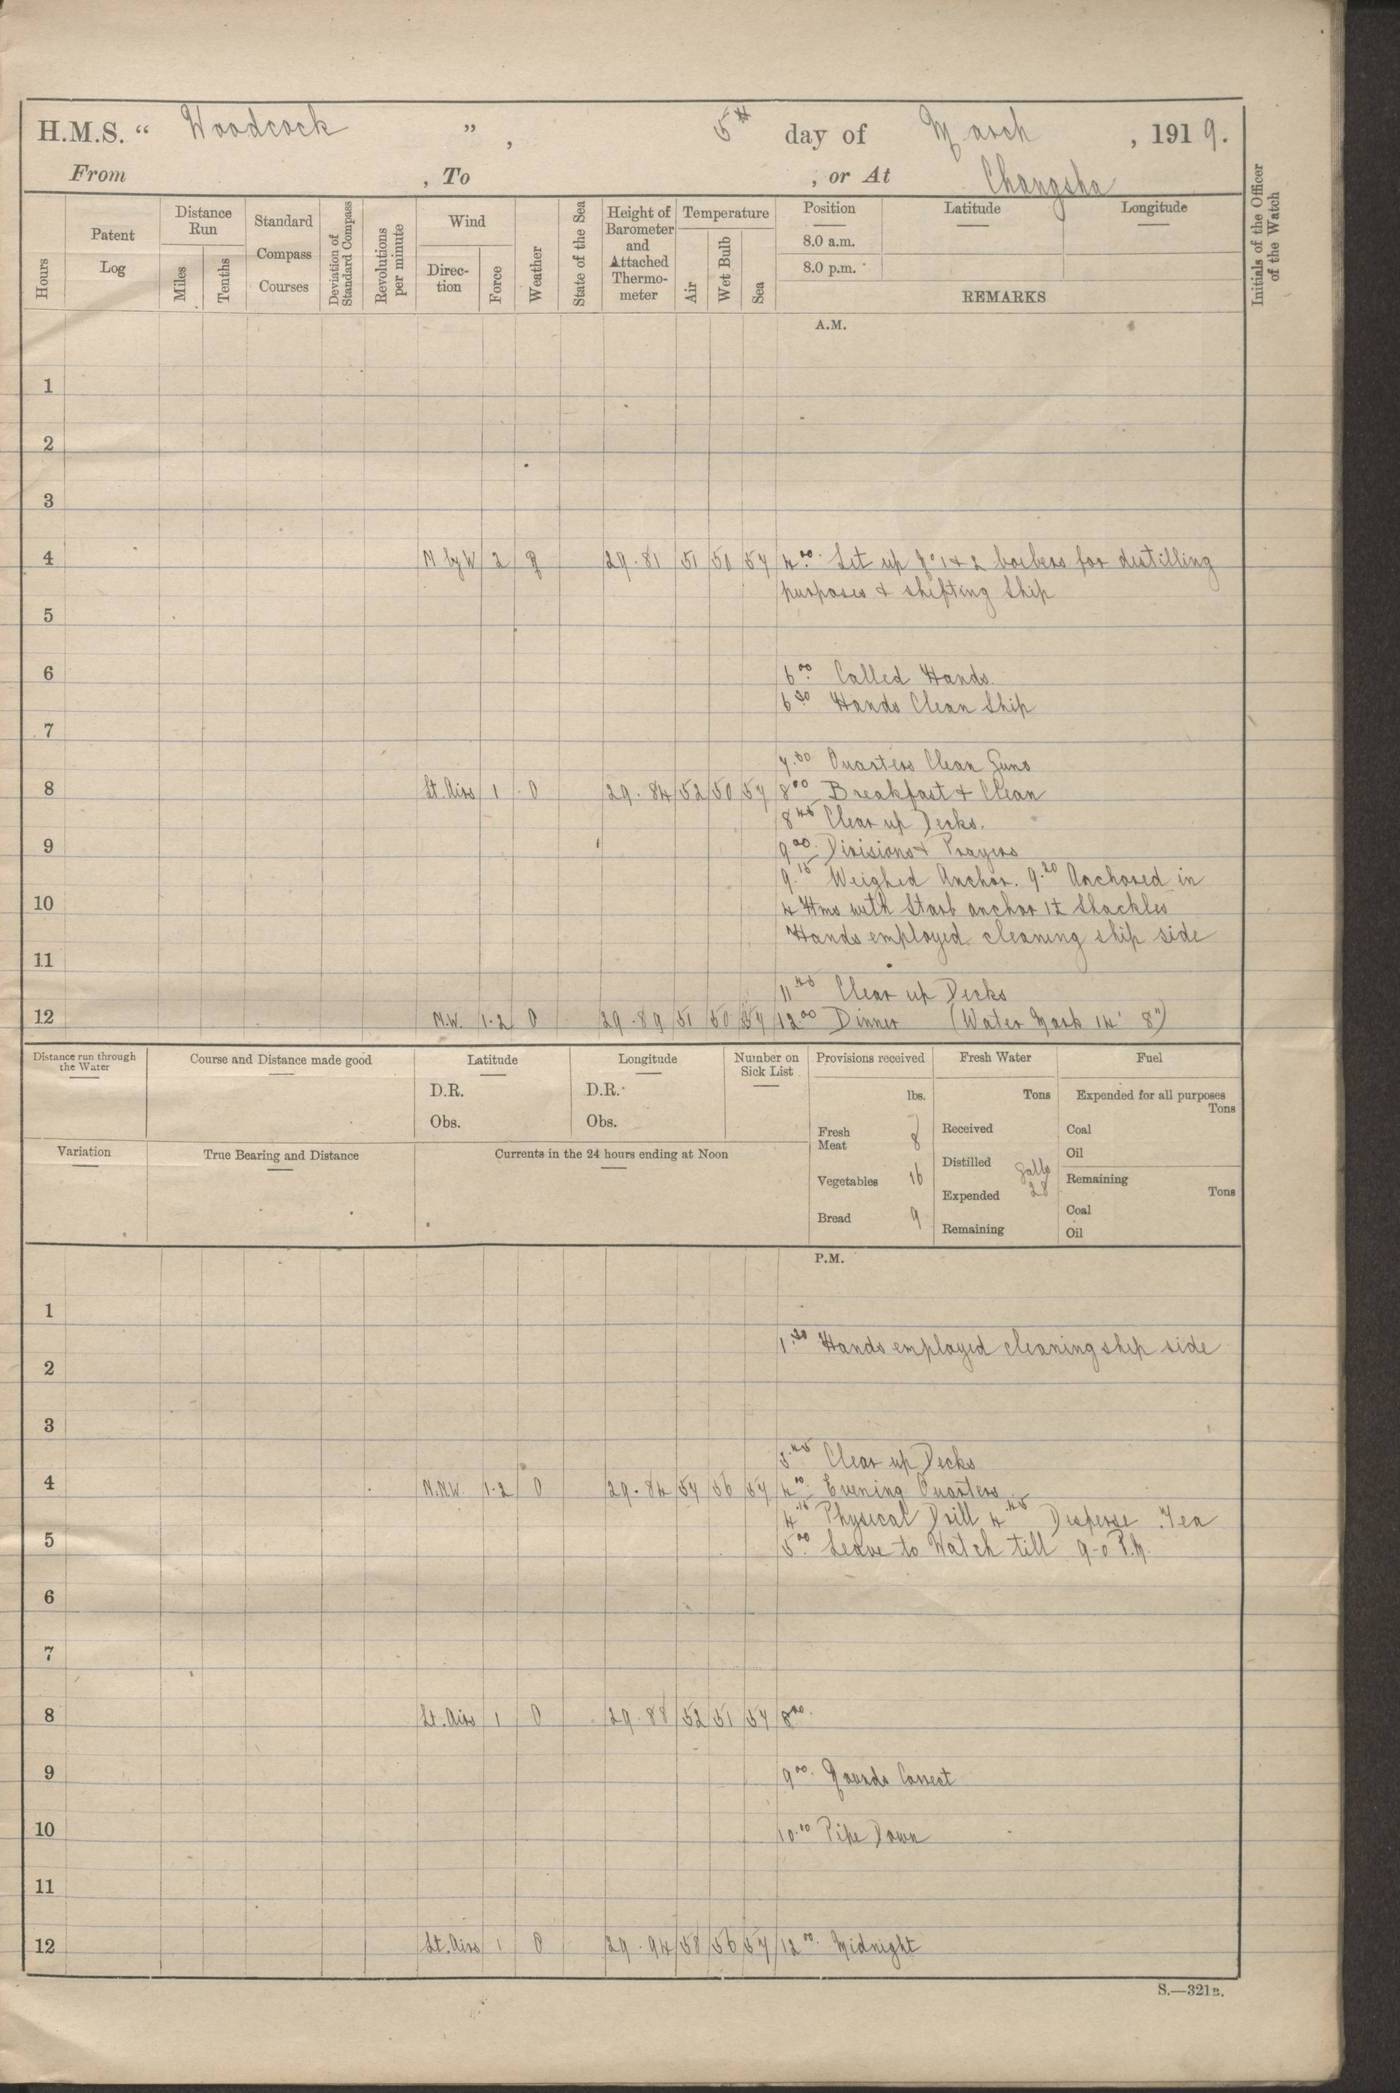 H.M.S. “ Woodcock ”, 5th day of March, 1919.
From , To , or At Changsha
Hours
Patent Log
Distance Run
Miles
Tenths
Standard Compass Courses
Deviation of Standard Compass
Revolutions per minute
Wind
Direction
Force
Weather
State of the Sea
Height of Barometer and Attached Thermometer
Temperature
Air
Wet Bulb
Sea
Position Latitude Longitude
8.0 a.m.
8.0 p.m.
REMARKS
Initials of the Officer of the Watch
A.M.
1
2
3
4 N by W 2 29.81 51 50 54 4.00 Set up No 1 & 2 boilers for distilling
purposes & shifting Ship
5
6 6.00 Called Hands.
6.30 Hands Clean Ship
7
7.30 Quarters Clean Guns
8 Lt. Airs 1 O 29.84 52 50 54 8.00 Breakfast & Clean
8.45 Clear up Decks.
9 9.00 Divisions & Prayers
9.15 Weighed Anchor. 9.20 Anchored in
10 4 Fms with Starb anchor 1½ Shackles
Hands employed cleaning ship side
11
11.45 Clear up Decks
12 N.W. 1-2 O 29.89 51 50 54 12.00 Dinner (Water Mark 14' 8")
Distance run through the Water
Course and Distance made good
Latitude
D.R.
Obs.
Longitude
D.R.
Obs.
Number on Sick List
Provisions received
lbs.
Fresh Meat 8
Vegetables 16
Bread 9
Fresh Water
Tons
Received
Distilled
Expended galls 28
Remaining
Fuel
Expended for all purposes
Tons
Coal
Oil
Remaining
Tons
Coal
Oil
Variation
True Bearing and Distance
Currents in the 24 hours ending at Noon
P.M.
1
1.30 Hands employed cleaning ship side
2
3
3.45 Clear up Decks
4 N.NW. 1-2 O 29.84 54 56 54 4.00 Evening Quarters
4.15 Physical Drill 4.45 Disperse. Tea
5 5.00 Leave to Watch till 9-0 P.M.
6
7
8 Lt. Airs 1 O 29.88 52 51 54 8.00
9 9.00 Rounds Correct
10 10.00 Pipe Down
11
12 Lt. Airs 1 O 29.94 58 56 54 12.00 Midnight
S.—321B.